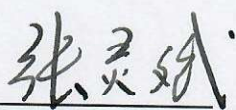 张灵斌